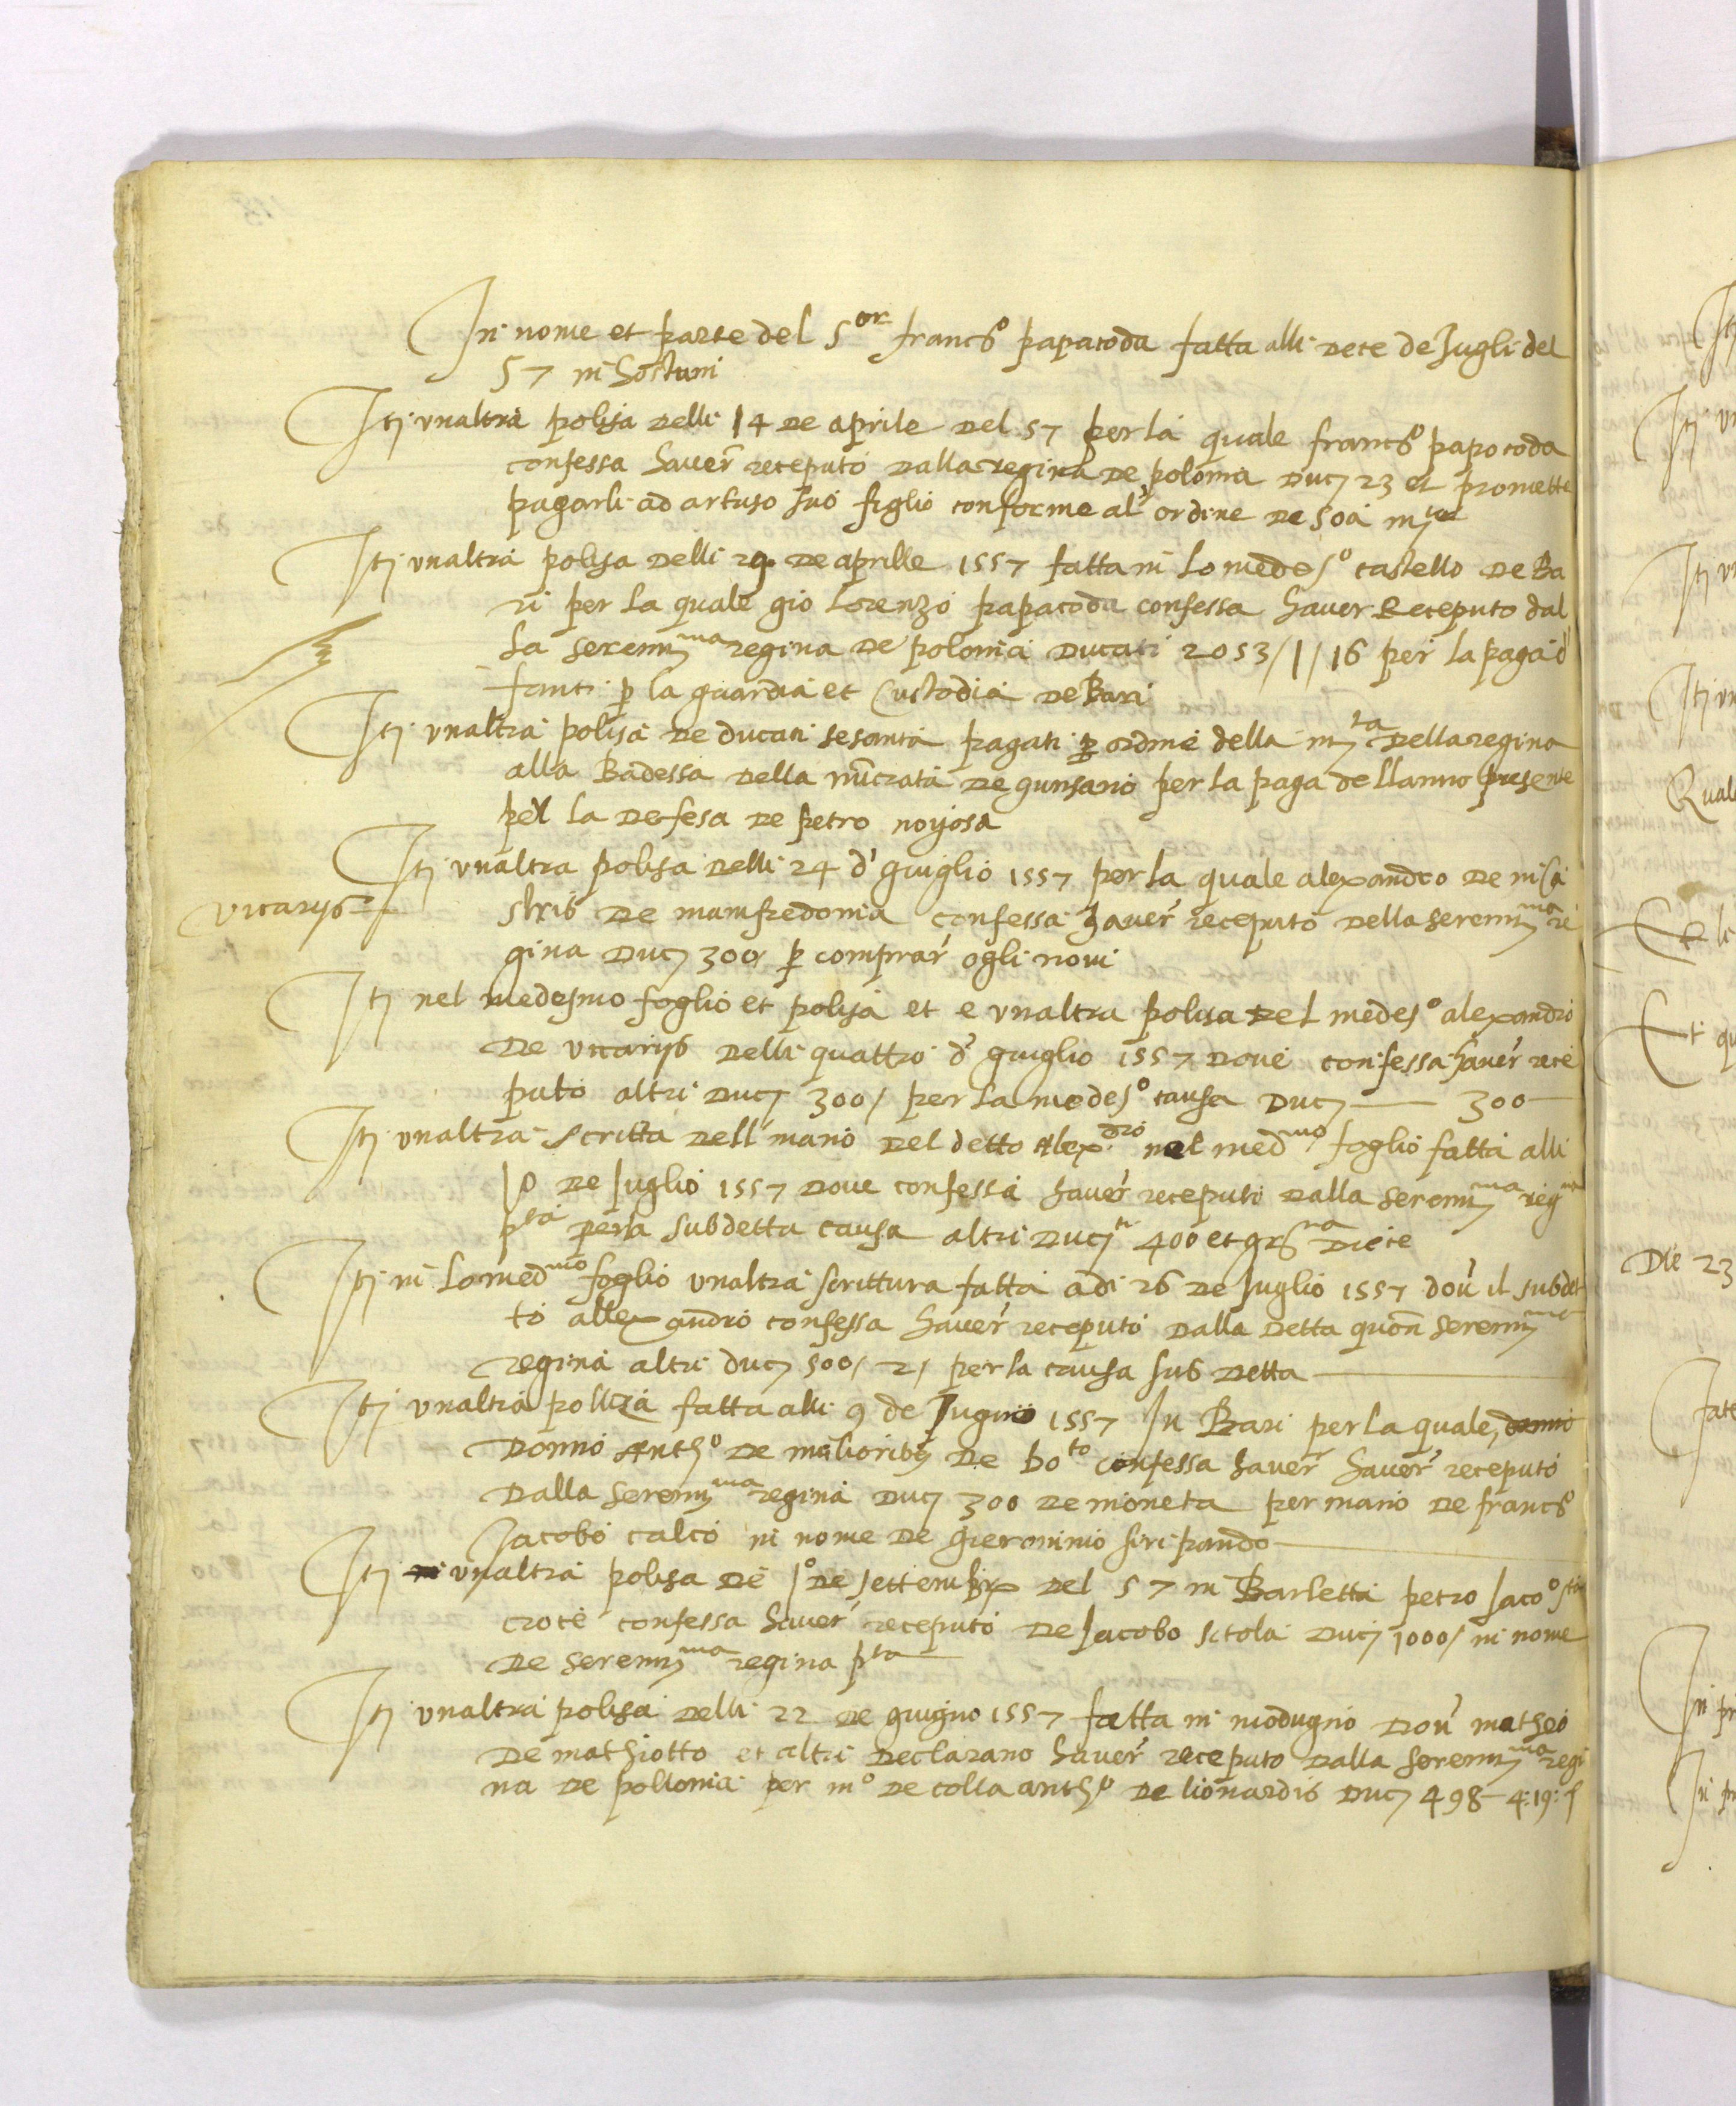 In nome et parte del S.or franc.o papacoda fatta alli dece de Jugli del
57 in hostuni
Itj unaltra polisa delli 14 de aprile del 57 per la quale franc.o papocoda
confessa haver receputo dalla regina de polonia duc. 23 et promette
pagarli ad artuso suo figlio conforme al' ordine de soa m.ta
Itj unaltra polisa delli 29 de aprille 1557 fatta in lo medes.o castello de Ba
ri per la quale gio lorenzo papacoda confessa haver Receputo dal
la seren.ma regina de polonia ducati 2053/1/16 per la paga d'
fanti p la guardia et Custodia de Bari
Itj unaltra polisa de ducati sesanta pagati p ordine della m.ta della regina
alla Badessa della de per la paga dellanno presente
per la defesa de petro noyosa
Itj unaltra polisa delli 24 d' giuglio 1557 per la quale alexandro de
vicarijs
de manfredonia confessa haver receputo della seren.ma re
gina duc. 300 p comprar ogli novi
Itj nel medesmo foglio et polisa et e unaltra polisa del medes.o alexandro
de vicarijs delli quattro d' giuglio 1557 dove confessa haver rece
puto altri duc. 300/ per la medes.o causa Duc. — 300 —
Itj unaltra scritta dell mano del detto Alex.dro nel med.mo foglio fatta alli
10 de Juglio 1557 dove confessa haver receputi dalla seren.ma reg.na
p.ta per la subdetta causa altri Duc.ti 400 et gr.na diece
Itj in lo med.mo foglio unaltra scrittura fatta adi 26 de Juglio 1557 dov' il subdet
to allexandro confessa haver receputo dalla detta quon. seren.ma
regina altri duc. 500/ 2/ per la causa sub detta —
Itj unaltra polliza fatta alli 9 de Jugnio 1557 In Bari per la quale, donno
Donno Anth.o de melioribus de bo.to confessa haver haver receputo
dalla seren.ma regina duc. 300 de moneta per mano de franc.o
Jacobo calco in nome de gieronimo siripando —
Itj unaltra polisa de p.o de settembre del 57 in Barletta petro Jaco.o
croce confessa haver receputo de Jacobo scola duc. 1000/ in nome
de seren.ma regina p.ta —
Itj unaltra polisa delli 22 de giugno 1557 fatta in modugno dov' matheo
de mathiotto et altri declarano haver receputo dalla seren.ma regi
na de pollonia per m.o de colla anth.o de lionardis duc. 498-4:19: